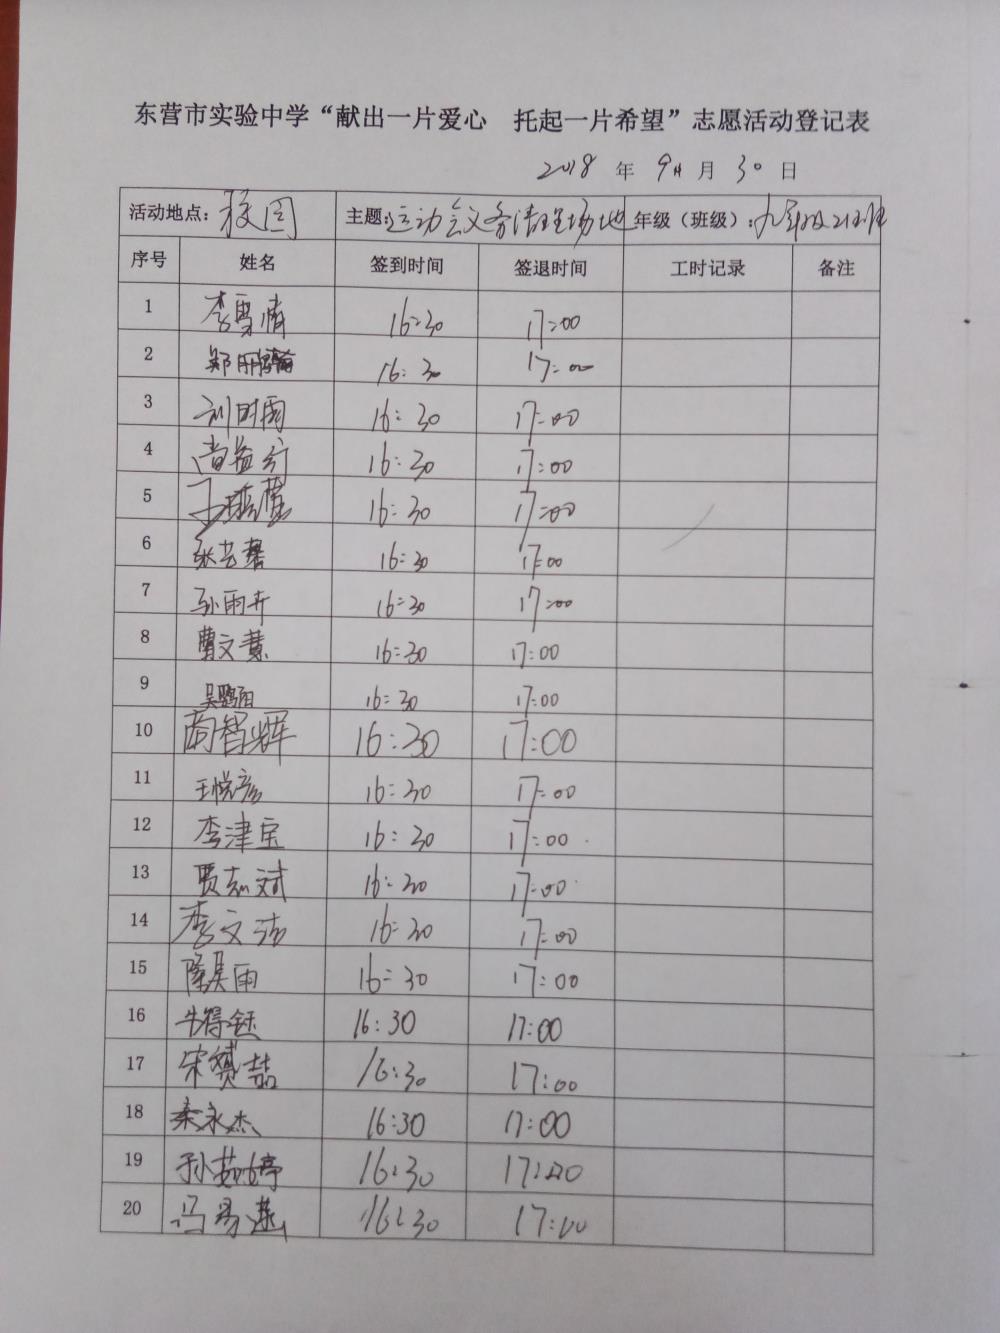 东营市实验中学“献出一片爱心 托起一片希望”志愿活动登记表
2018 年 9月 月 30 日
活动地点：校园 主题：运动会义务清理场地 年级（班级）：九年级21班
序号 姓名 签到时间 签退时间 工时记录 备注
1 李雪倩 16:30 17:00
2 16:30 17:00
3 刘时雨 16:30 17:00
4 尚益行 16:30 17:00
5 16:30 17:00
6 16:30 17:00
7 孙雨卉 16:30 17:00
8 曹文慧 16:30 17:00
9 16:30 17:00
10 尚智辉 16:30 17:00
11 王悦彦 16:30 17:00
12 李津宝 16:30 17:00
13 贾志斌 16:30 17:00
14 李文涛 16:30 17:00
15 隆昊雨 16:30 17:00
16 牛得钰 16:30 17:00
17 宋赟喆 16:30 17:00
18 秦永杰 16:30 17:00
19 孙茹婷 16:30 17:00
20 冯易莲 16:30 17:00